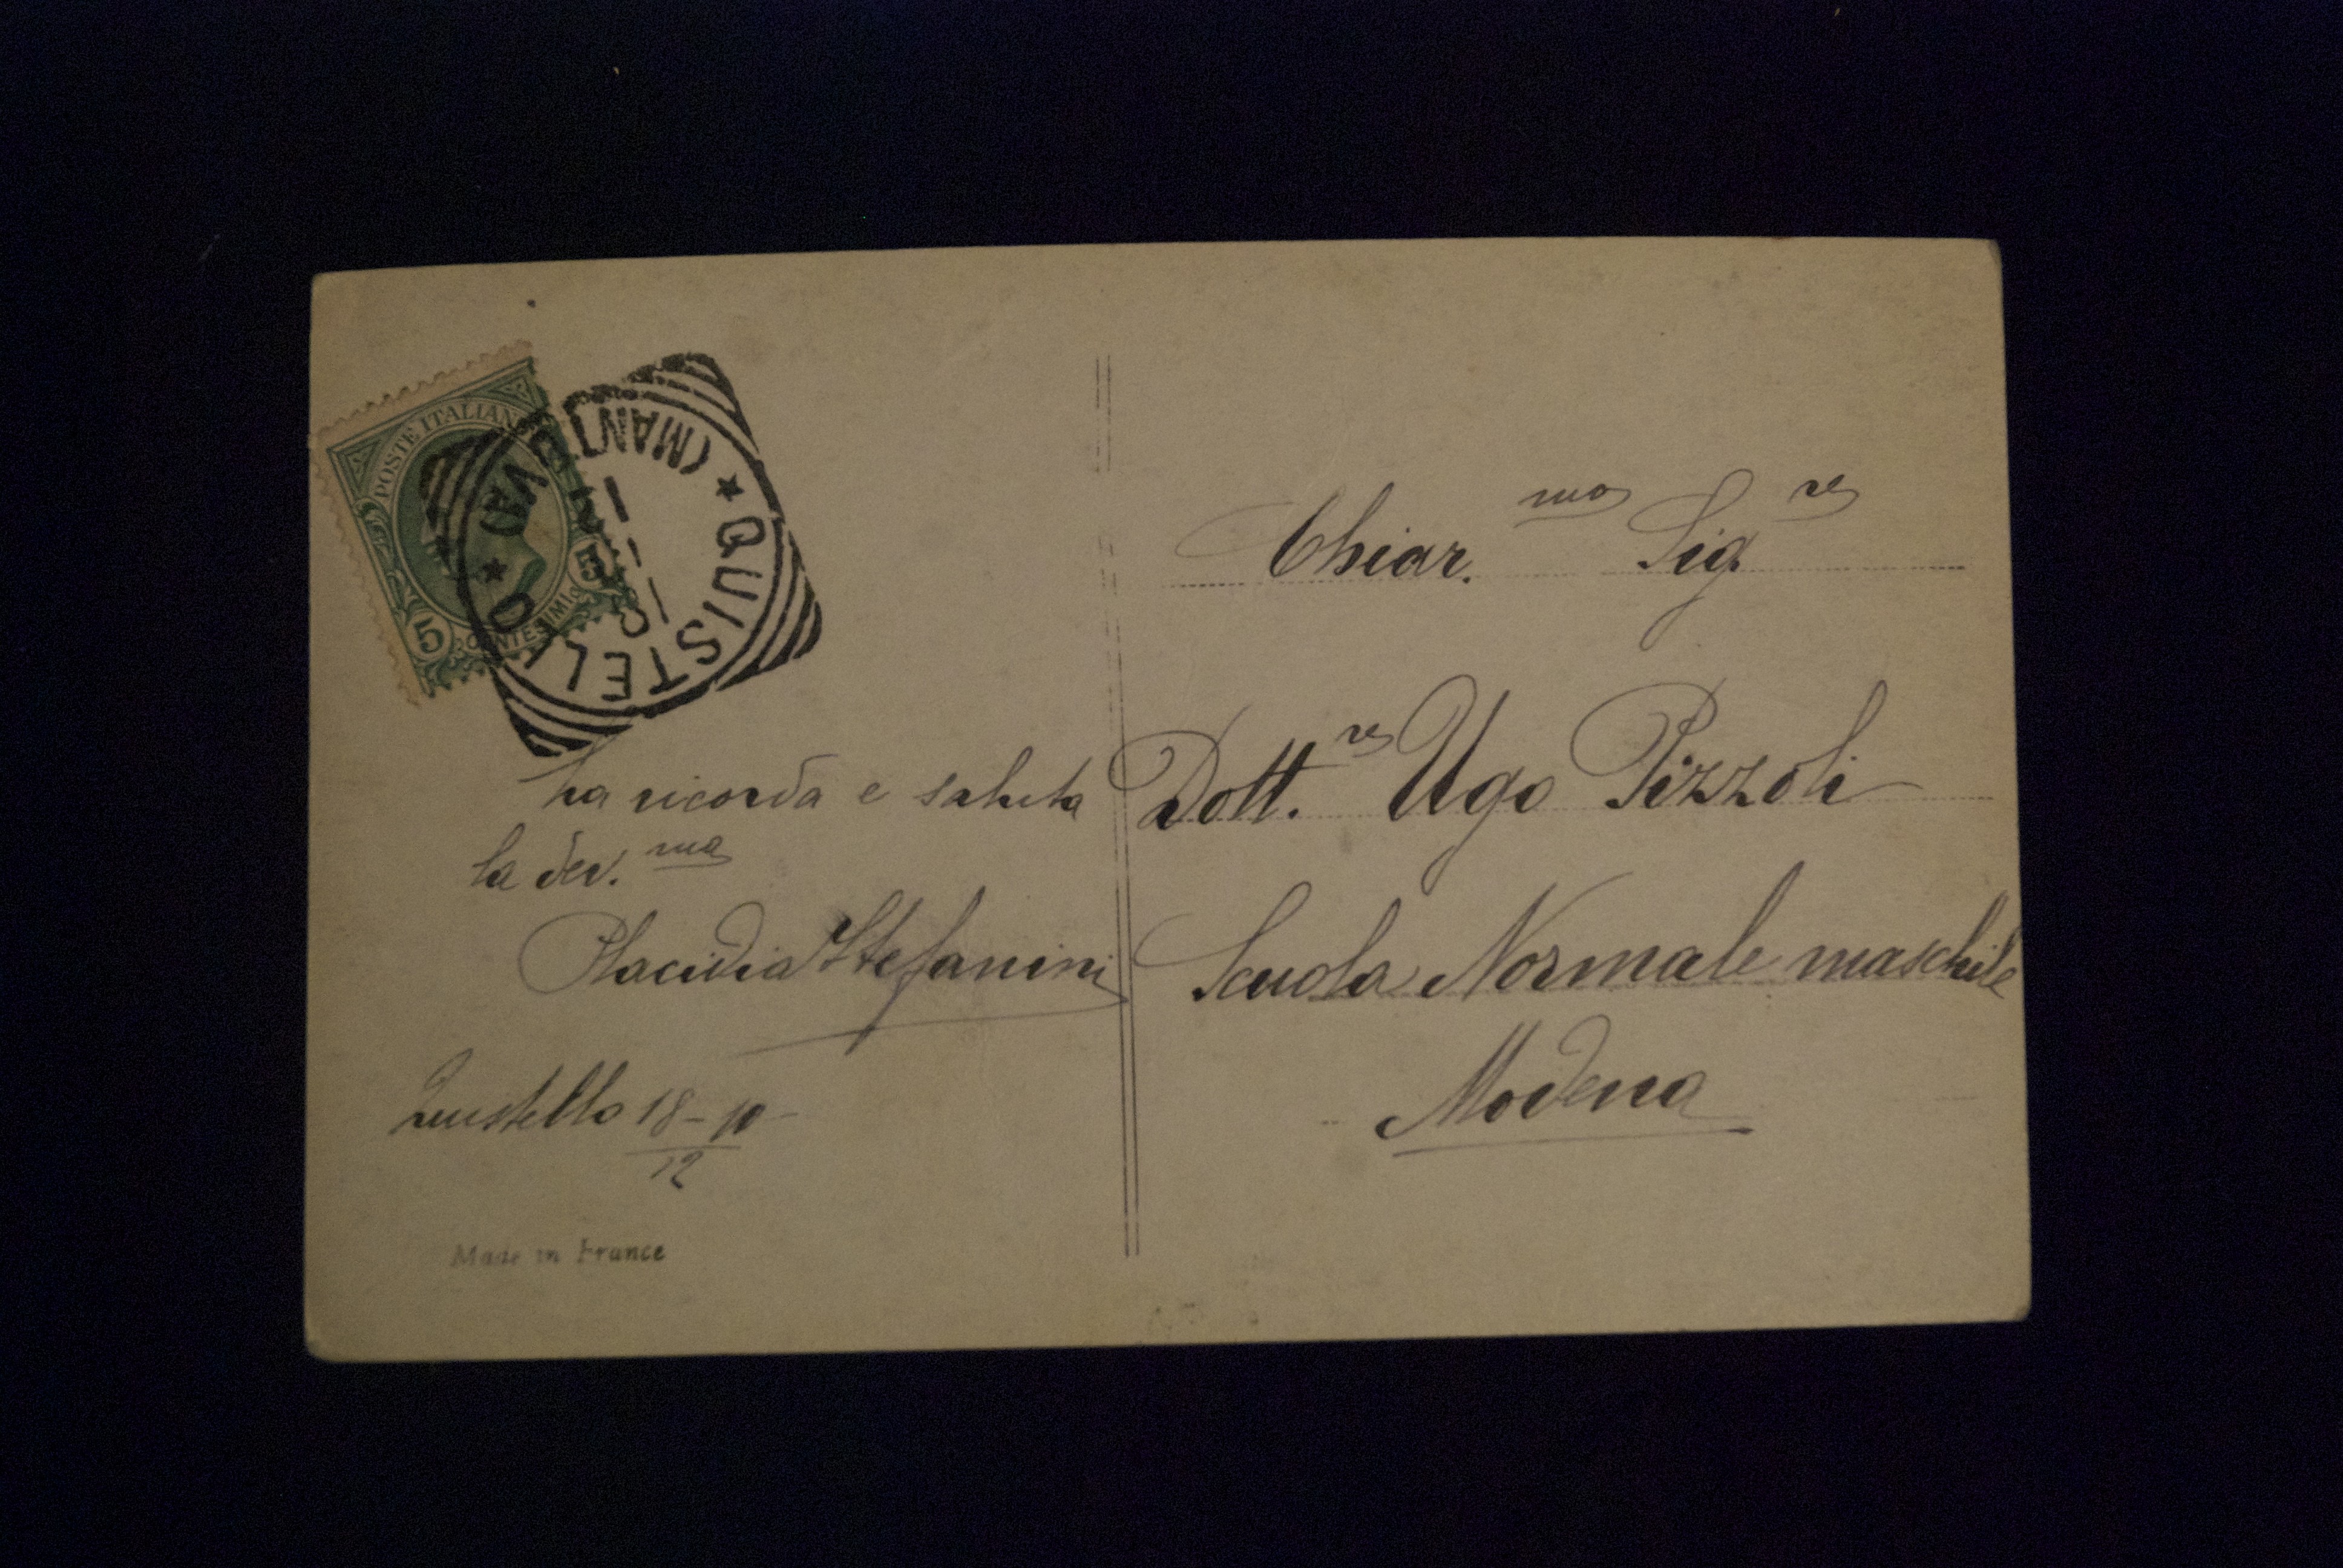 POSTE ITALIANE
5 CENTESIMI 5
QUISTELLO
(MANTOVA)
La ricorda e saluta
la dev.ma
Placidia Stefanini
Quistello 18-10-
12
Made in France
Chiar.mo Sig.re
Dott.re Ugo Pizzoli
Scuola Normale maschile
Modena